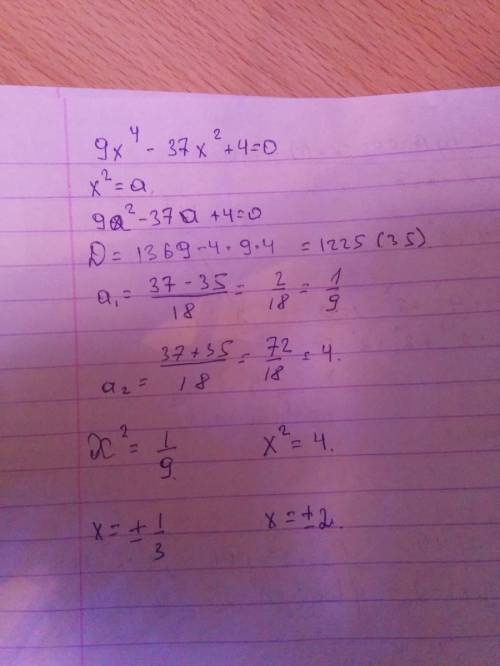 9x⁴ - 37x² + 4 = 0
x² = a.
9a² - 37a + 4 = 0
D = 1369 - 4 · 9 · 4 = 1225 (35).
a₁ = (37 - 35)/18 = 2/18 = 1/9
a₂ = (37 + 35)/18 = 72/18 = 4.
x² = 1/9. x² = 4.
x = ± 1/3 x = ± 2.